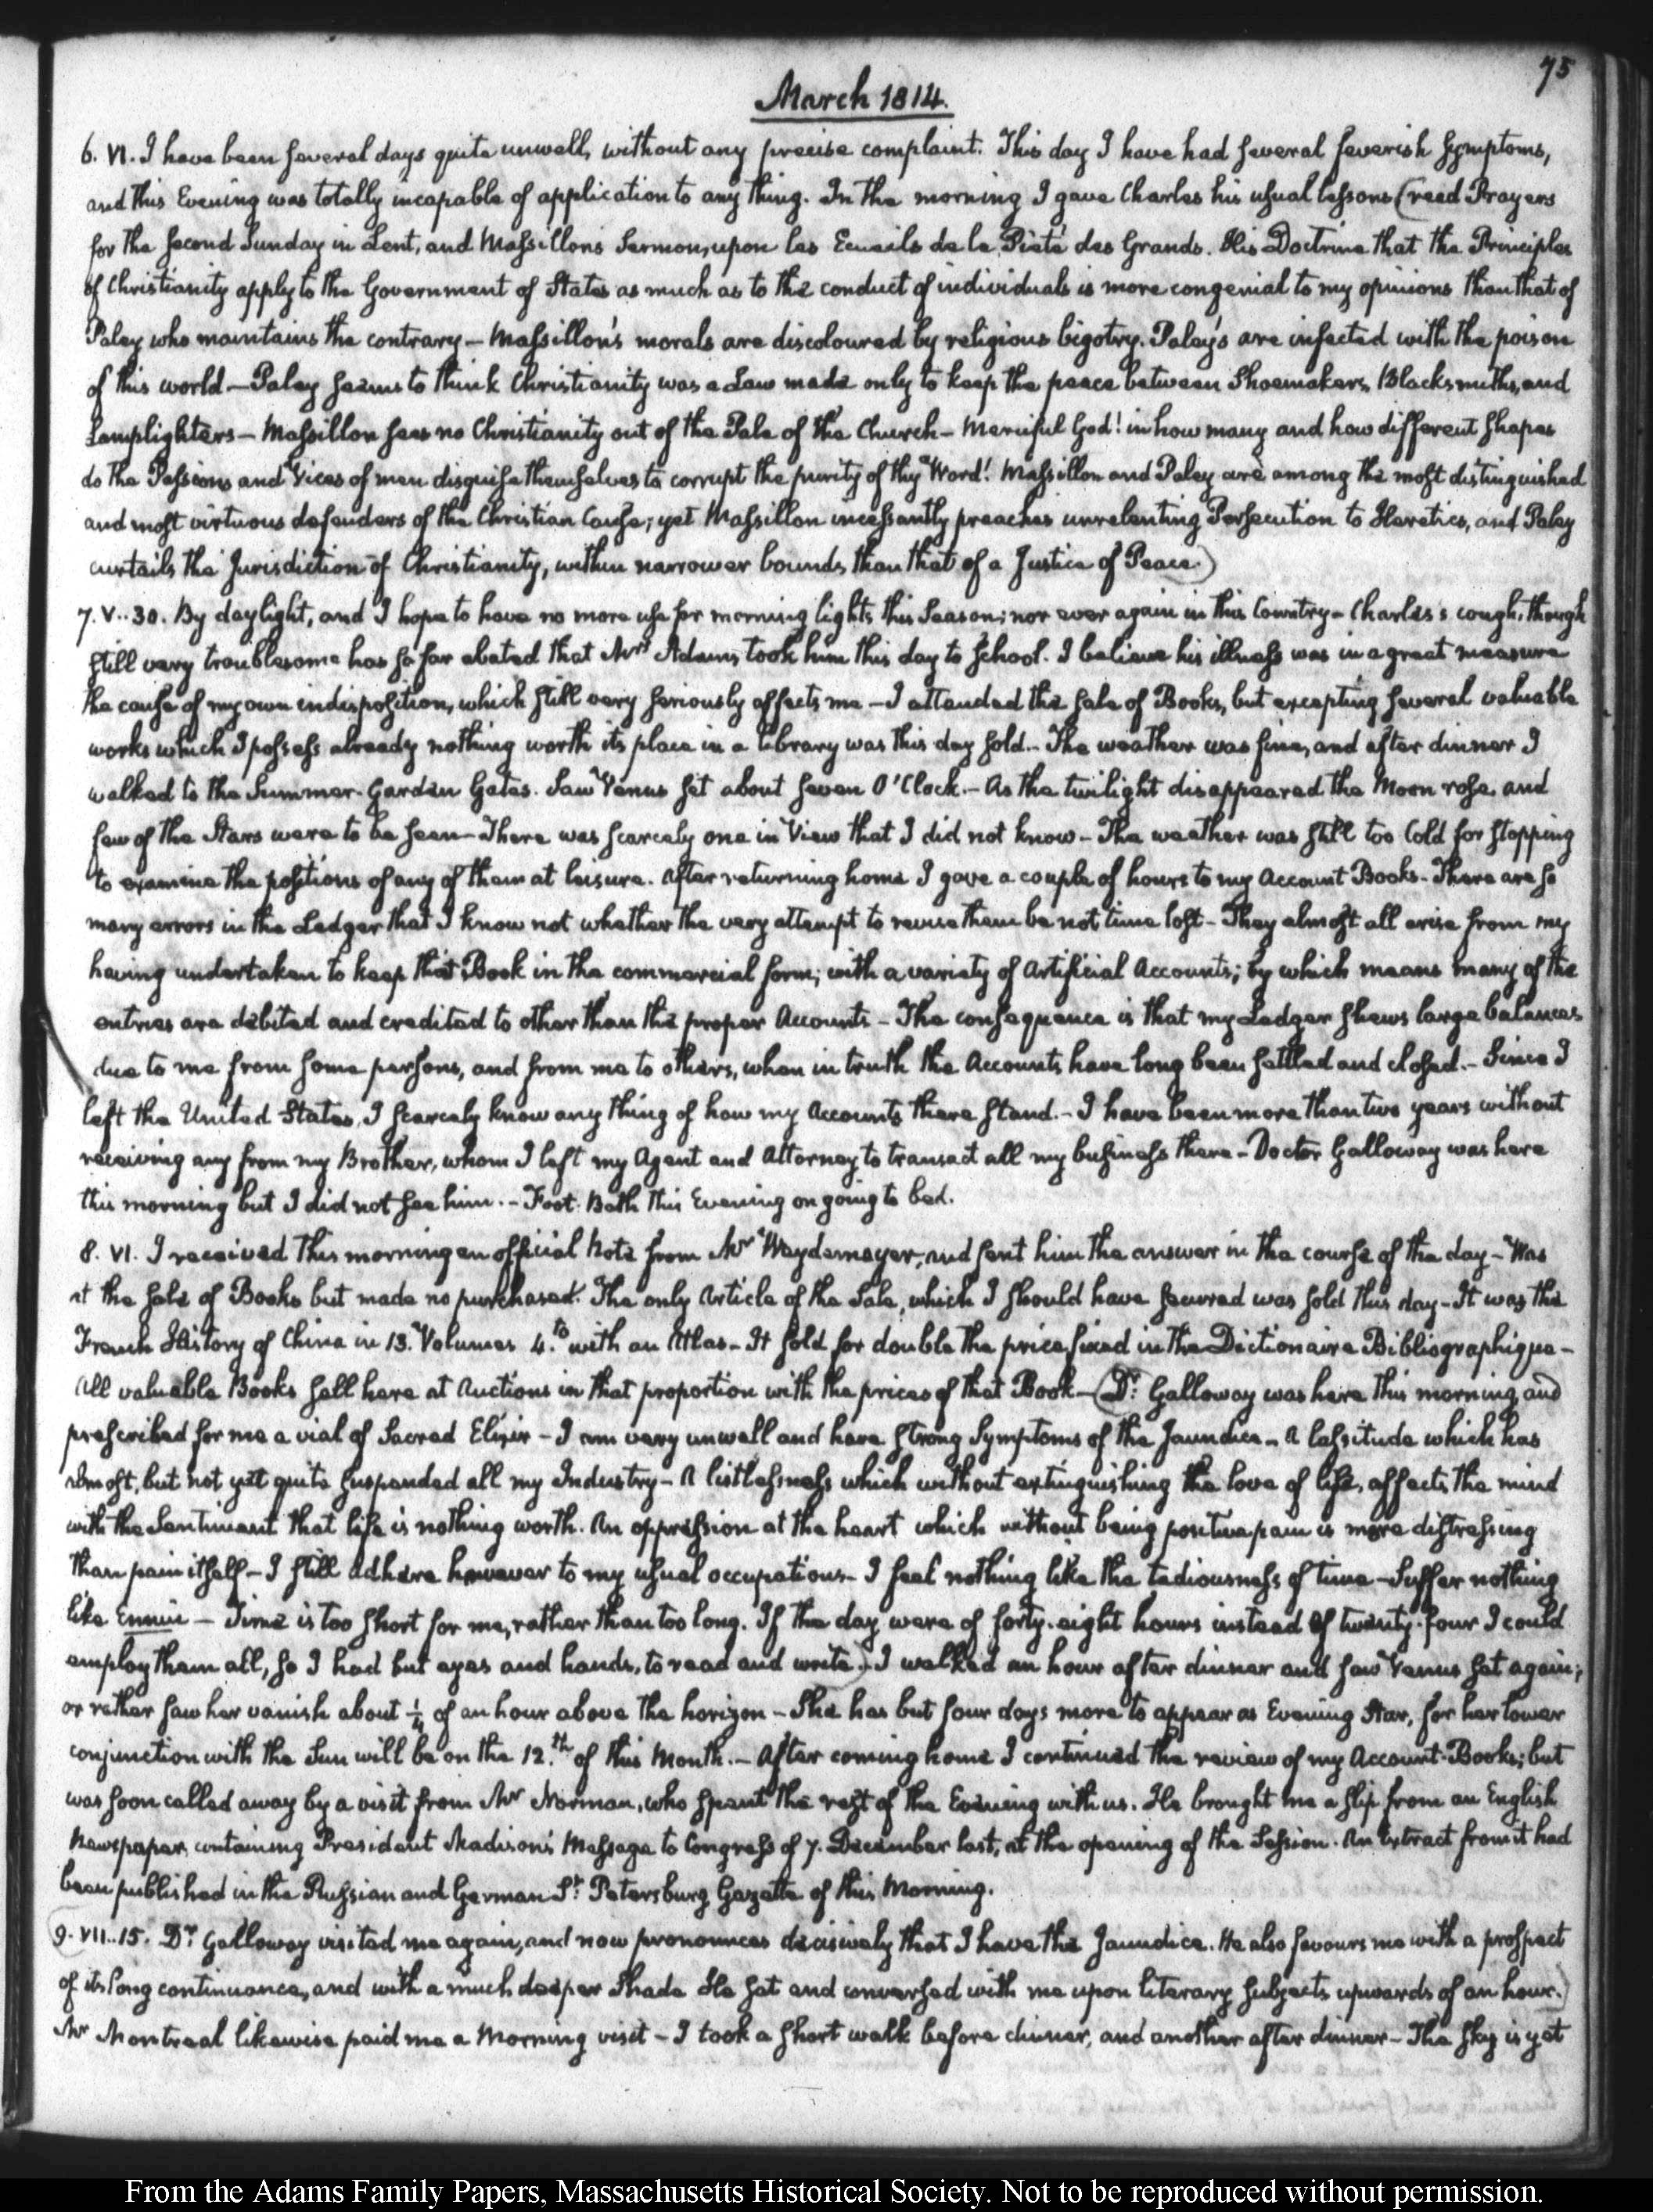 75
March 1814.
6. VI. I have been several days quite unwell, without any precise complaint. This day I have had several feverish symptoms,
and this Evening was totally incapable of application to any thing. In the morning I gave Charles his usual lessons (read Prayers
for the second Sunday in Lent, and Massillon's Sermon, upon les Ecueils de la Pieté des Grands. His Doctrine that the Principles
of Christianity apply to the Government of States as much as to the conduct of individuals is more congenial to my opinions than that of
Paley who maintains the contrary — Massillon's morals are discoloured by religious bigotry. Paley's are infected with the poison
of this world — Paley seems to think Christianity was a Law made only to keep the peace between Shoemakers, Blacksmiths, and
Lamplighters — Massillon sees no Christianity out of the Pale of the Church — Merciful God! in how many and how different shapes
do the Passions and Vices of men disguise themselves to corrupt the purity of thy Word! Massillon and Paley are among the most distinguished
and most virtuous defenders of the Christian Cause; yet Massillon incessantly preaches unrelenting Persecution to Heretics, and Paley
curtails the Jurisdiction of Christianity, within narrower bounds than that of a Justice of Peace.)
7. V..30. By daylight, and I hope to have no more use for morning lights this Season; nor ever again in this Country — Charles's cough, though
still very troublesome has so far abated that Mrs Adams took him this day to School. I believe his illness was in a great measure
the cause of my own indisposition, which still very seriously affects me — I attended the sale of Books, but excepting several valuable
works which I possess already nothing worth its place in a library was this day sold — The weather was fine, and after dinner I
walked to the Summer-Garden Gates. Saw Venus set about seven O'Clock. — As the twilight disappeared the Moon rose, and
few of the Stars were to be seen — There was scarcely one in View that I did not know — The weather was still too Cold for stopping
to examine the positions of any of them at leisure. After returning home I gave a couple of hours to my Account Books — There are so
many errors in the Ledger that I know not whether the very attempt to revise them be not time lost — They almost all arise from my
having undertaken to keep that Book in the commercial form; with a variety of Artificial Accounts; by which means many of the
entries are debited and credited to other than the proper Accounts — The consequence is that my Ledger shews large balances
due to me from some persons, and from me to others, when in truth the Accounts have long been settled and closed. — Since I
left the United States, I scarcely know any thing of how my Accounts there stand. — I have been more than two years without
receiving any from my Brother, whom I left my Agent and Attorney to transact all my business there — Doctor Galloway was here
this morning but I did not see him. — Foot-Bath this Evening on going to bed.
8. VI. I received this morning an official Note from Mr Weydemeyer, and sent him the answer in the course of the day — Was
at the sale of Books but made no purchases. The only Article of the Sale, which I should have secured was sold this day — It was the
French History of China in 13. Volumes 4.to with an Atlas — It sold for double the price fixed in the Dictionaire Bibliographique —
All valuable Books sell here at Auctions in that proportion with the prices of that Book — (Dr. Galloway was here this morning and
prescribed for me a vial of Sacred Elixir — I am very unwell and have strong Symptoms of the Jaundice — A lassitude which has
almost, but not yet quite suspended all my Industry — A listlessness which without extinguishing the love of life, affects the mind
with the Sentiment that life is nothing worth. An oppression at the heart which without being positive pain is more distressing
than pain itself — I still adhere however to my usual occupations — I feel nothing like the tediousness of time — Suffer nothing
like Ennui — Time is too short for me, rather than too long. If the day were of forty-eight hours instead of twenty-four I could
employ them all, so I had but eyes and hands, to read and write.) I walked an hour after dinner and saw Venus set again;
or rather saw her vanish about ¼ of an hour above the horizon — She has but four days more to appear as Evening Star, for her lower
conjunction with the Sun will be on the 12.th of this Month. — After coming home I continued the review of my Account-Books; but
was soon called away by a visit from Mr Norman, who spent the rest of the Evening with us. He brought me a slip from an English
Newspaper, containing President Madison's Message to Congress of 7. December last, at the opening of the Session. An extract from it had
been published in the Russian and German St. Petersburg Gazette of this Morning.
(9. VII..15. Dr. Galloway visited me again, and now pronounces decisively that I have the Jaundice. He also favours me with a prospect
of its long continuance, and with a much deeper Shade He sat and conversed with me upon literary subjects upwards of an hour.)
Mr Montreal likewise paid me a Morning visit — I took a short walk before dinner, and another after dinner — The sky is yet
From the Adams Family Papers, Massachusetts Historical Society. Not to be reproduced without permission.